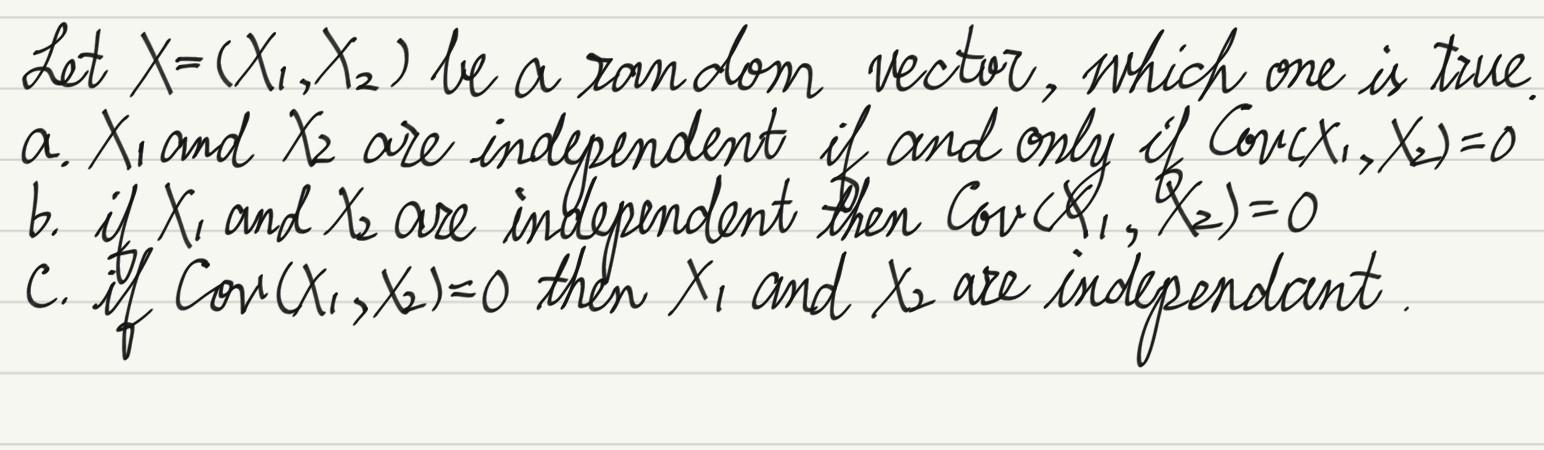 Let X=(X₁,X₂) be a random vector, which one is true.
a. X₁ and X₂ are independent if and only if Cov(X₁,X₂)=0
b. if X₁ and X₂ are independent then Cov(X₁,X₂)=0
c. if Cov(X₁,X₂)=0 then X₁ and X₂ are independant.